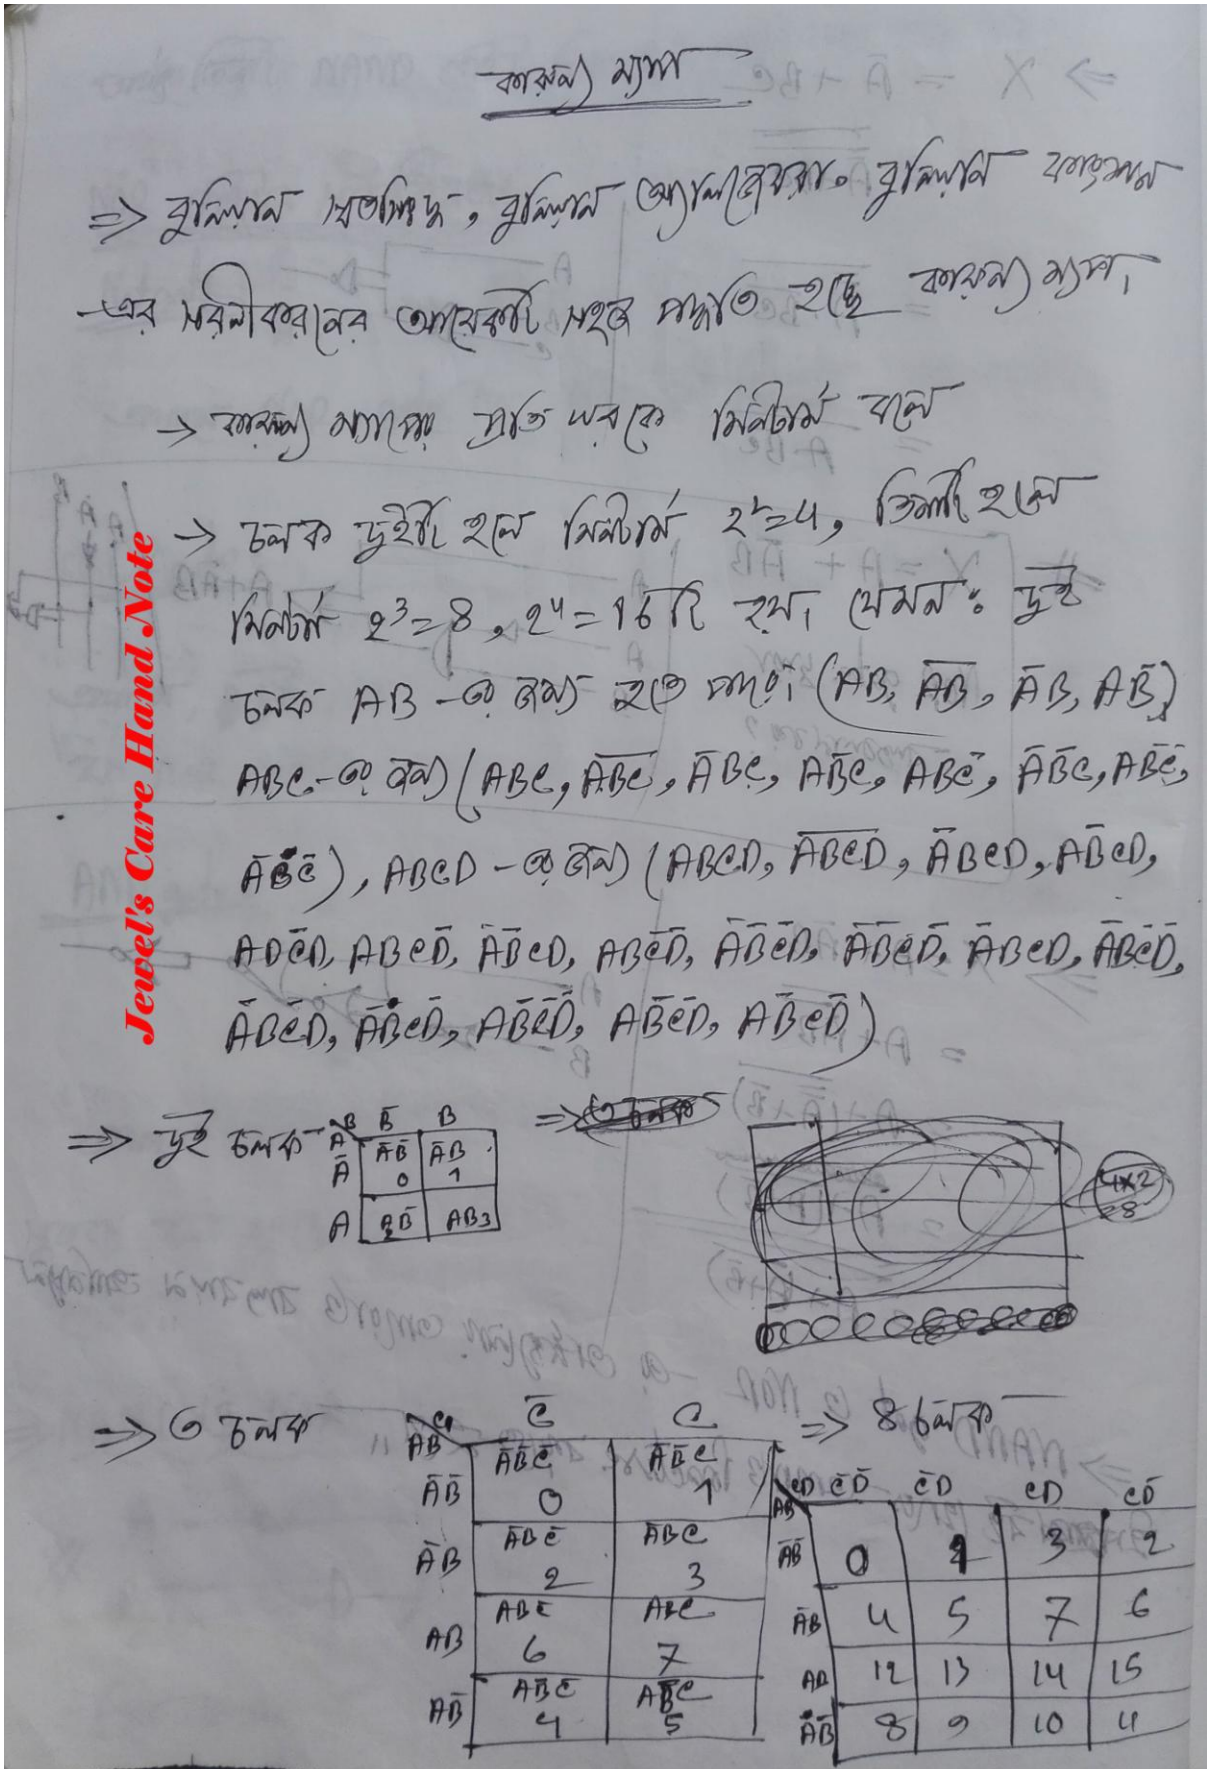 কারনু ম্যাপ
⇒ বুলিয়ান স্বতসিদ্ধ, বুলিয়ান অ্যালজেবরা, বুলিয়ান ফাংশন
-এর সরলীকরনের আরেকটি সহজ পদ্ধতি হচ্ছে কারনু ম্যাপ।
→ কারনু ম্যাপের প্রতি ঘরকে মিনটার্ম বলে
→ চলক দুইটি হলে মিনটার্ম 2²=4, তিনটি হলে
মিনটার্ম 2³=8, 2⁴=16টি হয়। যেমন: দুই
চলক AB -এর জন্য হতে পারে। (AB, A̅B̅, A̅B, AB̅)
ABC-এর জন্য (ABC, A̅B̅C̅, A̅BC, AB̅C, ABC̅, A̅B̅C, AB̅C̅,
A̅BC̅), ABCD -এর জন্য (ABCD, A̅B̅C̅D̅, A̅BCD, AB̅CD,
ADC̅D, ABCD̅, A̅B̅CD, ABC̅D̅, A̅B̅C̅D, A̅B̅C̅D̅, A̅BCD, A̅BC̅D̅,
A̅BC̅D, A̅B̅CD̅, AB̅C̅D̅, AB̅C̅D, AB̅CD̅)
⇒ দুই চলক A B B̅ B
A̅ A̅B̅ 0 A̅B 1
A AB̅ 2 AB 3
⇒ ৩ চলক
4×2
=8
⇒ ৩ চলক AB C C̅ C
A̅B̅ A̅B̅C̅ 0 A̅B̅C 1
A̅B A̅BC̅ 2 A̅BC 3
AB ABC̅ 6 ABC 7
AB̅ AB̅C̅ 4 AB̅C 5
⇒ ৪ চলক
AB CD C̅D̅ C̅D CD CD̅
A̅B̅ 0 1 3 2
A̅B 4 5 7 6
AB 12 13 14 15
A̅B̅ 8 9 10 11
Jewel's Care Hand Note